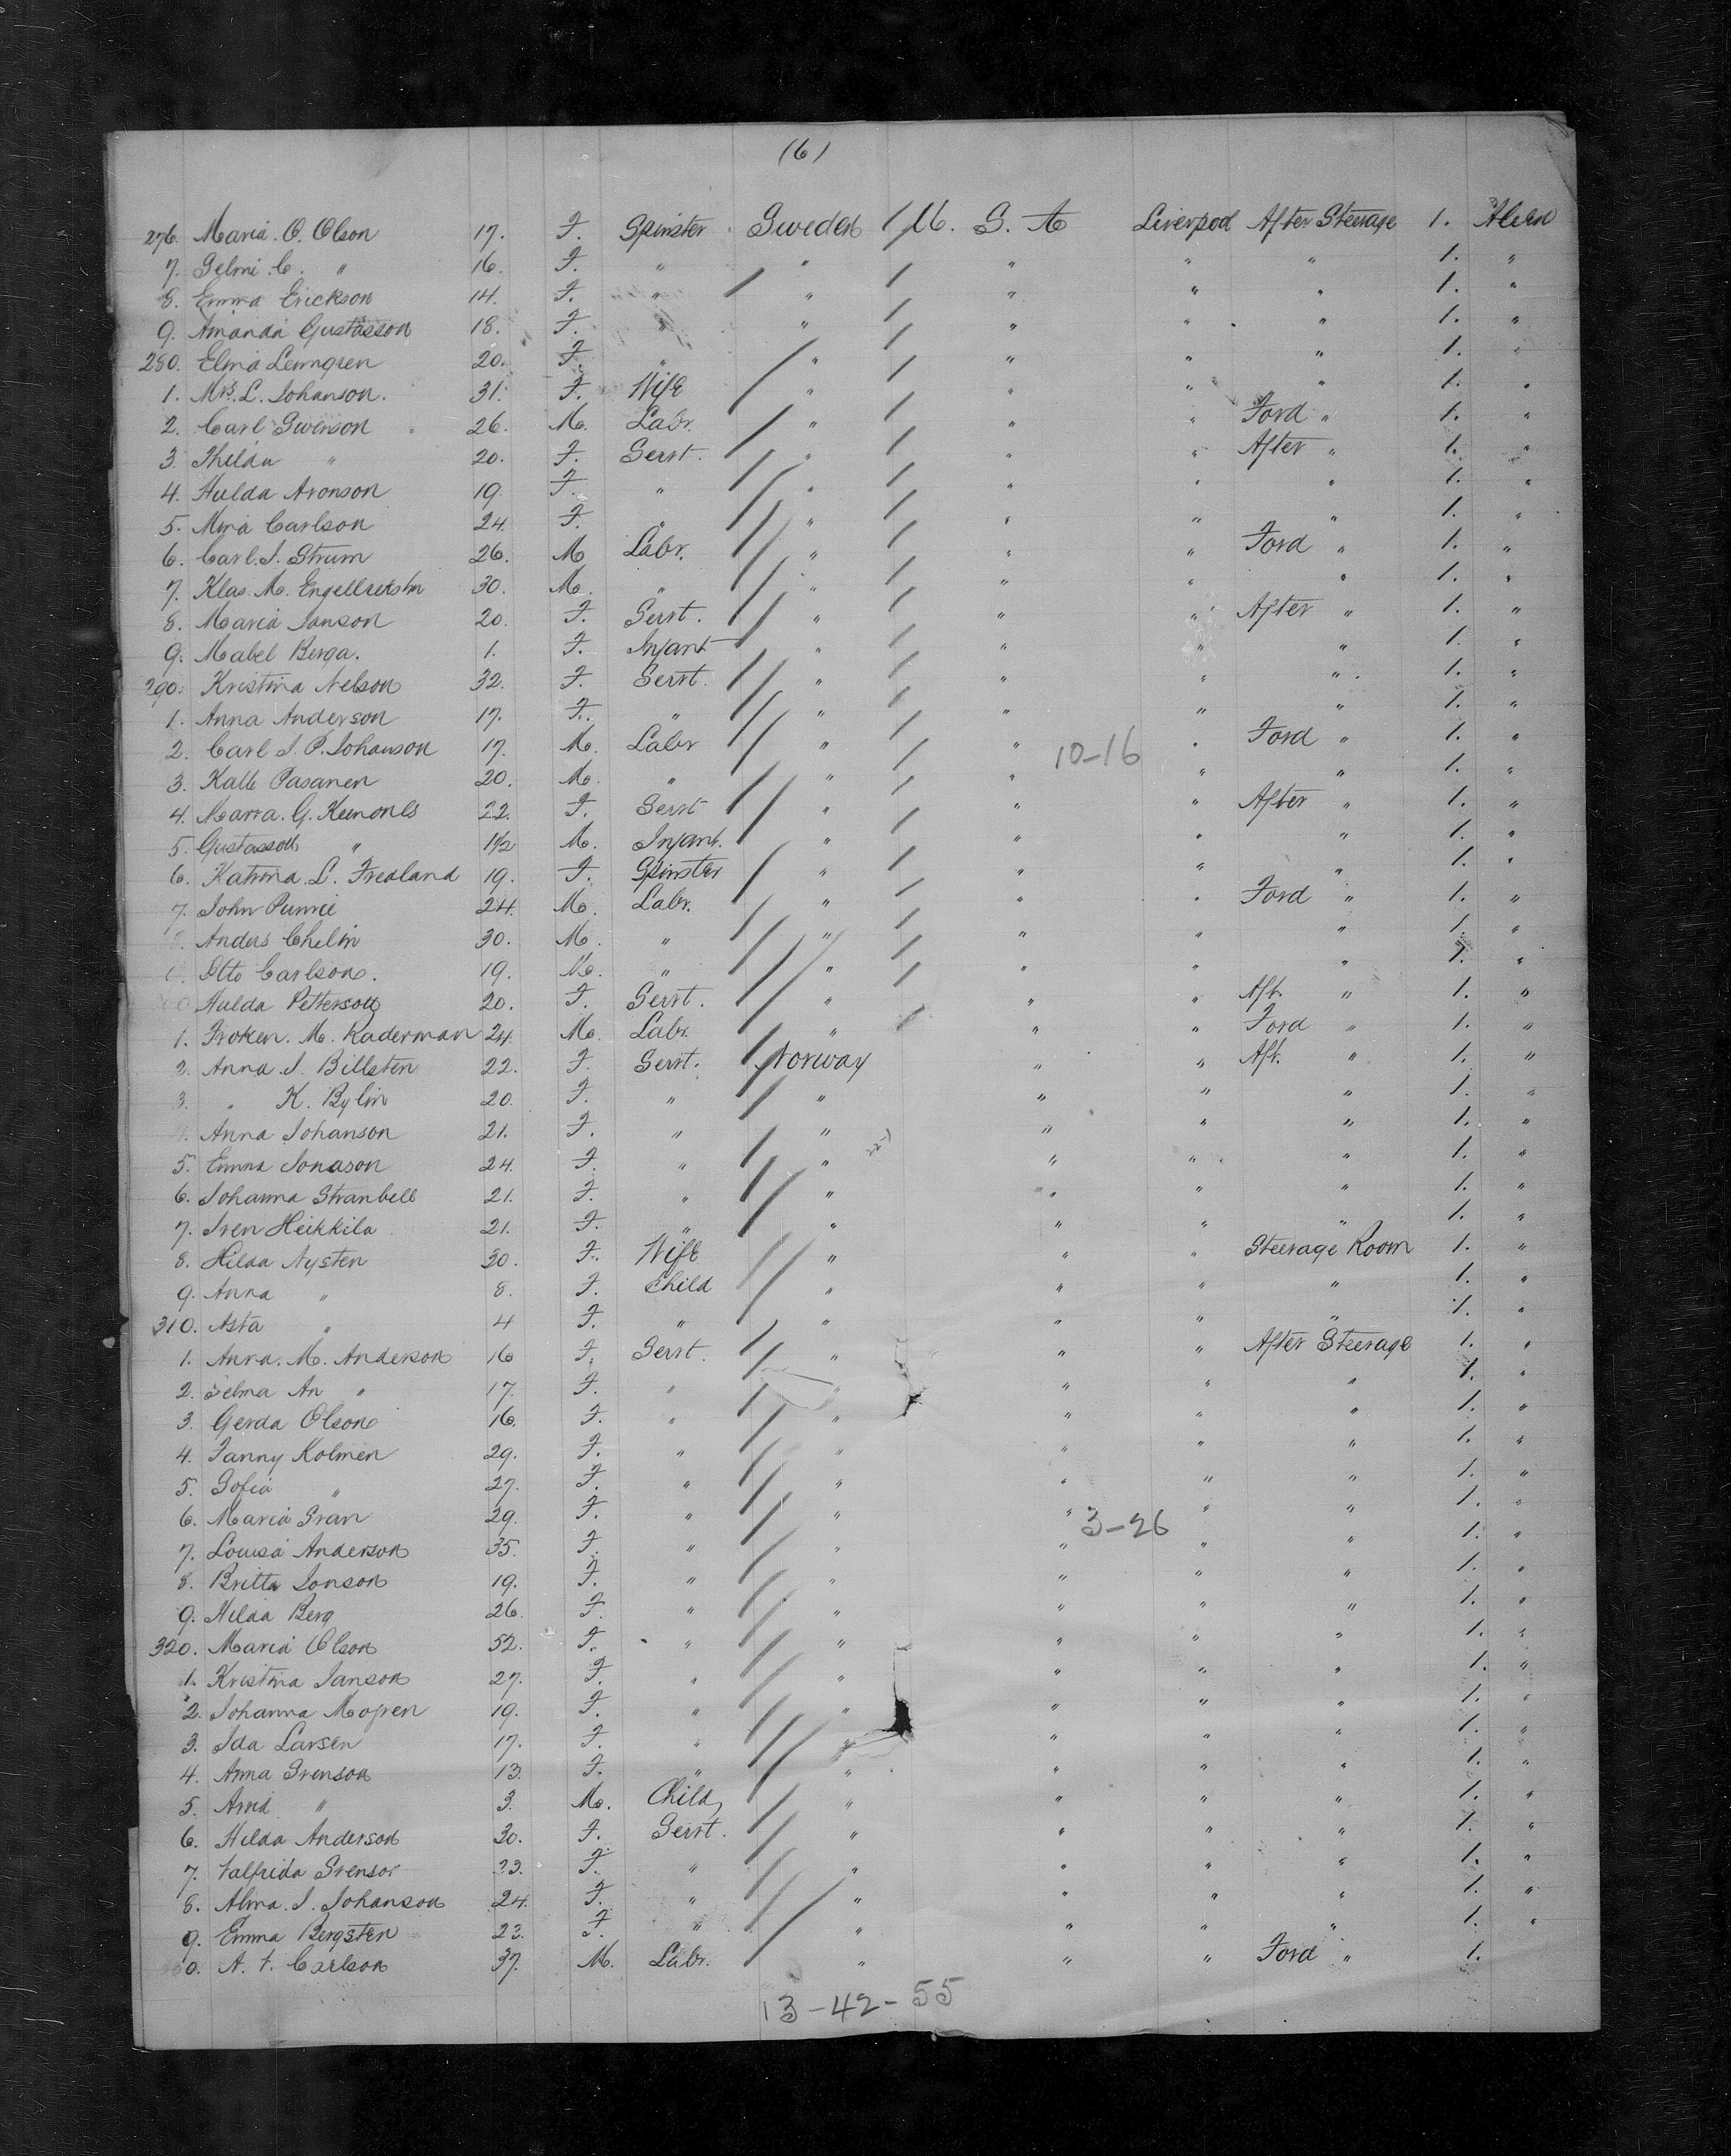 (6)
276. Maria. O. Olson 17. F. Spinster Sweden U. S. A Liverpool After Steerage 1. Alien
7. Selmi. C. " 16. F. " " " " " 1. "
8. Emma Erickson 14. F. " " " " " 1. "
9. Amanda Gustasson 18. F. " " " " " 1. "
280. Elma Lemngren 20. F. " " " " " 1. "
1. Mrs. L. Johanson. 31. F. Wife " " " " 1. "
2. Carl Swenson 26. M. Labr. " " " Ford " 1. "
3. Thilda " 20. F. Servt. " " " After " 1. "
4. Hulda Aronson 19. F. " " " " " 1. "
5. Mina Carlson 24. F. " " " " " 1. "
6. Carl. J. Strum 26. M Labr. " " " Ford " 1. "
7. Klas. M. 30. M. " " " " " 1. "
8. Maria Janson 20. F. Servt. " " " After " 1. "
9. Mabel Berga. 1. F. Infant " " " " 1. "
290. Kristina Nelson 32. F. Servt. " " " " 1. "
1. Anna Anderson 17. F. " " " " " 1. "
2. Carl J. P. Johanson 17. M. Labr " " 10-16 " Ford " 1. "
3. Kalle Pasanen 20. M. " " " " " 1. "
4. Marra. G. 22. F. Servt " " " After " 1. "
5. Gustasson " 1½ M. Infant. " " " " 1. "
6. Katrina. L. Fredland 19. F. Spinster " " " " 1. "
7. John 24. M. Labr. " " " Ford " 1. "
8. Anders Chelin 30. M. " " " " " 1. "
9. Otto Carlson. 19. M. " " " " " 1. "
Hulda Petterson 20. F. Servt. " " " Aft. " 1. "
1. Froken. M. Kaderman 24. M. Labr. " " " Ford " 1. "
2. Anna. J. Billsten 22. F. Servt. Norway " " Aft. " 1. "
3. " K. Bylin 20. F. " " " " " 1. "
4. Anna Johanson 21. F. " " " " " 1. "
5. Emma Jonason 24. F. " " " " " 1. "
6. Johanna Stranbell 21. F. " " " " " 1. "
7. Iven Heikkila 21. F. " " " " " 1. "
8. Hilda Nysten 30. F. Wife " " " Steerage Room 1. "
9. Anna " 8. F. Child " " " " 1. "
310. Asta " 4 F. " " " " " 1. "
1. Anna. M. Anderson 16 F. Servt. " " " After Steerage 1. "
2. Selma An " 17. F. " " " " " 1. "
3. Gerda Olson 16. F. " " " " " 1. "
4. Fanny Kolmen 29. F. " " " " " 1. "
5. Sofia " 27. F. " " " " " 1. "
6. Maria Gran 29. F. " " " 3-26 " " 1. "
7. Louisa Anderson 35. F. " " " " " 1. "
8. Britta Jonson 19. F. " " " " " 1. "
9. Hilda Berg 26. F. " " " " " 1. "
320. Maria Olson 52. F. " " " " " 1. "
1. Kristina Janson 27. F. " " " " " 1. "
2. Johanna Mogren 19. F. " " " " " 1. "
3. Ida Larsen 17. F. " " " " " 1. "
4. Anna Svenson 13. F. " " " " " 1. "
5. Arvid " 3. M. Child " " " " 1. "
6. Hilda Anderson 30. F. Servt. " " " " 1. "
7. Valfrida Svenson 23. F. " " " " " 1. "
8. Alma. J. Johanson 24. F. " " " " " 1. "
9. Emma Bergsten 23. F. " " " " " 1. "
0. A. F. Carlson 37. M. Labr. " " " Ford " 1.
13-42-55